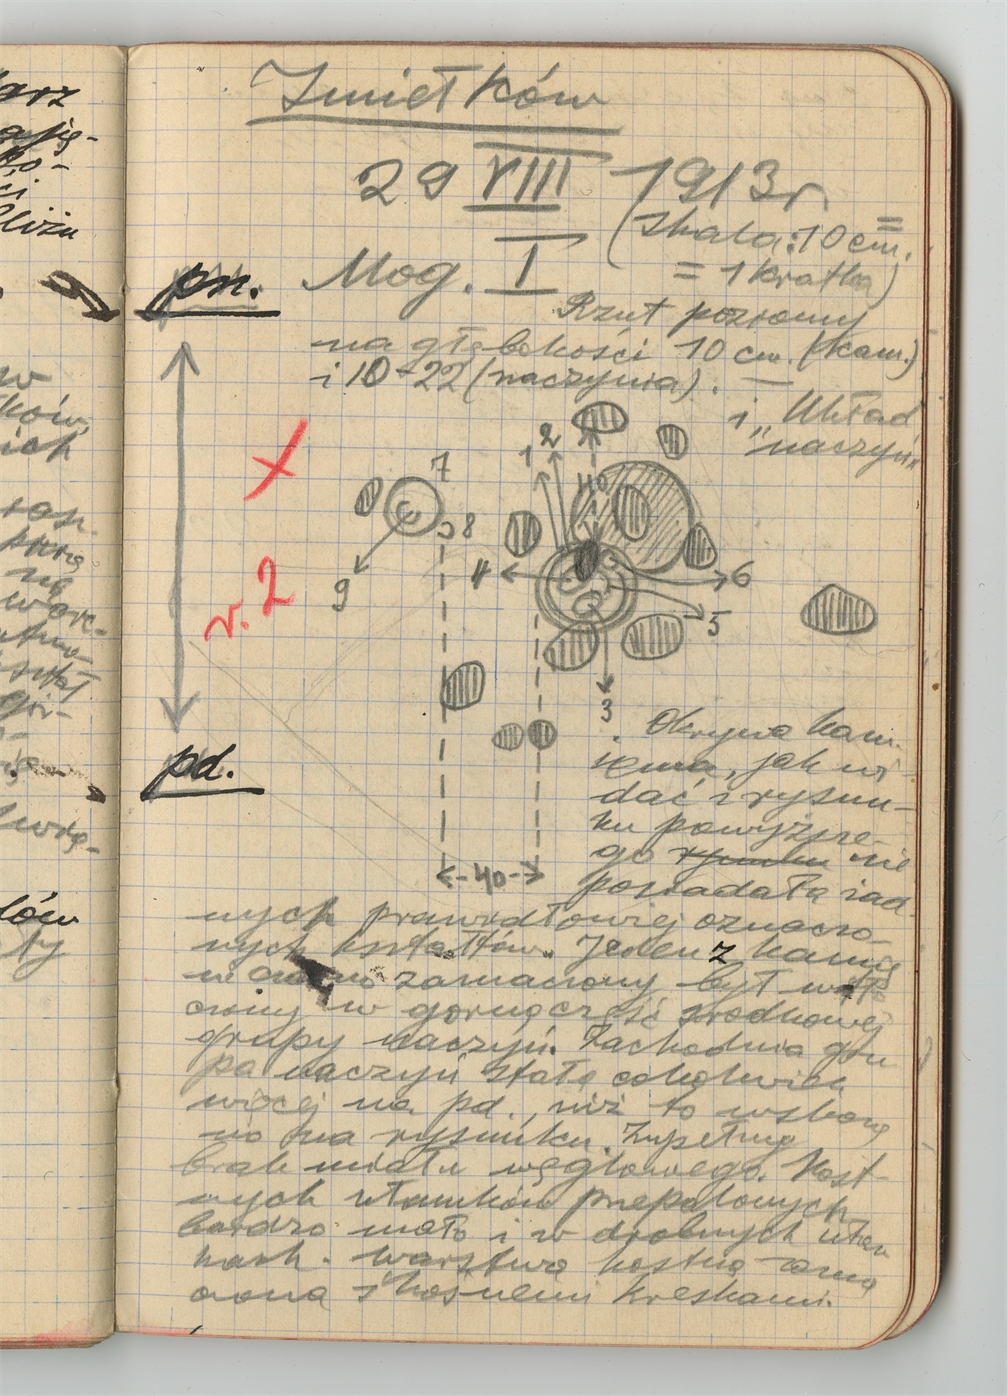 Zmietków
29 VIII 1913 r.
(Skala: 10 cm.
= 1 kratka)
pn. Mog. I
Rzut poziomy
na głębokości 10 cm. (kam.)
i 10-22 (naczynia). —
i „Układ
naczyń”
1 2 10
7
8
9
4 6
5
3
v. 2
pd.
40
Okrywa kam.
ienna, jak wi-
dać z rysun-
ku powyższe-
go nie
posiadała żad-
nych prawidłowiej oznaczo-
nych kształtów. Jeden z kamie
ni zaznaczony był wtło
czony w górną część środkowej
grupy naczyń. Zachodnia gru
pa naczyń stała cokolwiek
więcej na pd., niż to wskaza
no na rysunku. Zupełny
brak miału węglowego. Kost-
nych ułamków przepalonych
bardzo mało i w drobnych ułam
kach. Warstwa kostna zazna
czona skośnemi kreskami.
arz
ści
bliżu
w
ków,
ich
ków
ty